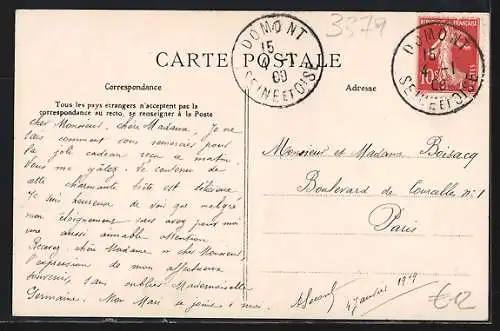 3379
DOMONT
15
4 -1
09
SEINE ET OISE
DOMONT
15
09
SEINE ET OISE
10
CARTE POSTALE
Correspondance
Adresse
Tous les pays étrangers n'acceptent pas la
correspondance au recto, se renseigner à la Poste
cher Monsieur, chère Madame, Je ne
sais comment vous remercier pour
la jolie cadeau reçu ce matin.
Vous me gâtez. Le contenu de
cette charmante boîte est délicieux
Je suis heureuse de voir que malgré
mon éloignement vous avez pour moi
une aussi aimable attention
Recevez, chère Madame et cher Monsieur,
l'expression de mon affectueux
souvenir, sans oublier Mademoiselle
Germaine. Mon Mari se joint à moi.
Monsieur et Madame Boisacq
Boulevard de Courcelles n° 1
Paris
4 Janvier 1909
€12